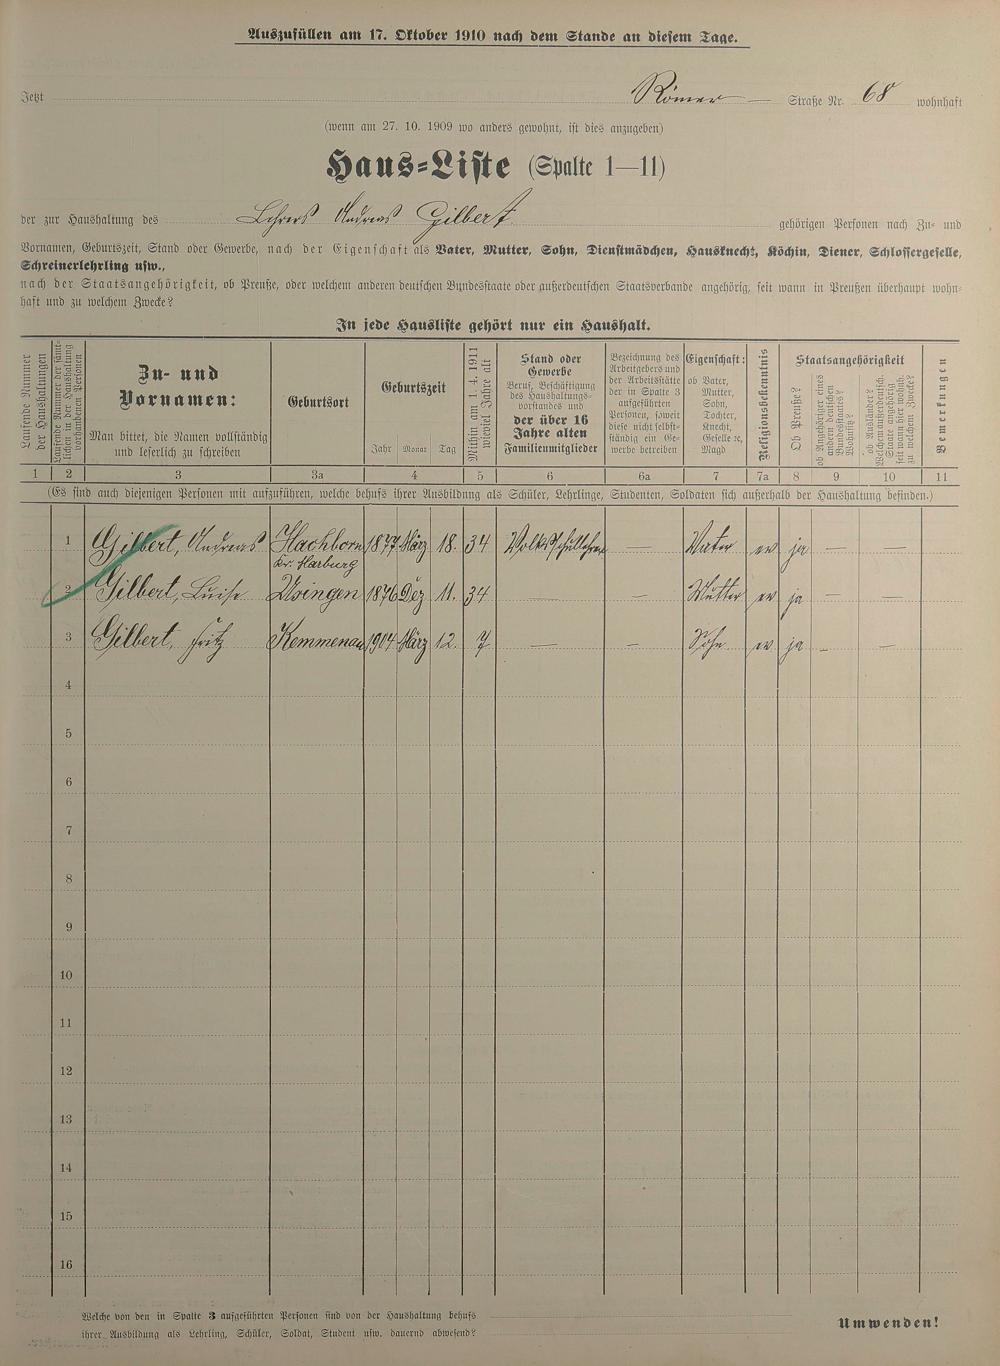 Auszufüllen am 17. Oktober 1910 nach dem Stande an diesem Tage.
Jetzt Römer — Straße Nr. 68 wohnhaft
(wenn am 27. 10. 1909 wo anders gewohnt, ist dies anzugeben)
Haus-Liste (Spalte 1—11)
der zur Haushaltung des Lehrers Andreas Gilbert gehörigen Personen nach Zu- und
Vornamen, Geburtszeit, Stand oder Gewerbe, nach der Eigenschaft als Vater, Mutter, Sohn, Dienstmädchen, Hausknecht, Köchin, Diener, Schlossergeselle,
Schreinerlehrling usw.,
nach der Staatsangehörigkeit, ob Preuße, oder welchem anderen deutschen Bundesstaate oder außerdeutschen Staatsverbande angehörig, seit wann in Preußen überhaupt wohn-
haft und zu welchem Zwecke?
In jede Hausliste gehört nur ein Haushalt.
Laufende Nummer
der Haushaltungen
Laufende Nummer der sämt-
lichen in der Haushaltung
vorhandenen Personen
Zu- und
Vornamen:
Man bittet, die Namen vollständig
und leserlich zu schreiben
Geburtsort
Geburtszeit
Jahr Monat Tag
Mithin am 1. 4. 1911
wieviel Jahre alt
Stand oder
Gewerbe
Beruf, Beschäftigung
des Haushaltungs-
vorstandes und
der über 16
Jahre alten
Familienmitglieder
Bezeichnung des
Arbeitgebers und
der Arbeitsstätte
der in Spalte 3
aufgeführten
Personen, soweit
diese nicht selbst-
ständig ein Ge-
werbe betreiben
Eigenschaft:
ob Vater,
Mutter,
Sohn,
Tochter,
Knecht,
Geselle &c,
Magd
Religionsbekenntnis
Staatsangehörigkeit
Ob Preuße?
ob Angehöriger eines
andern deutschen
Bundesstaates?
Wohnsitz?
ob Ausländer?
Welchem außerdeutsch.
Staate angehörig
seit wann hier wohnh.
zu welchem Zwecke?
Bemerkungen
1 2 3 3a 4 5 6 6a 7 7a 8 9 10 11
(Es sind auch diejenigen Personen mit aufzuführen, welche behufs ihrer Ausbildung als Schüler, Lehrlinge, Studenten, Soldaten sich außerhalb der Haushaltung befinden.)
1 Gilbert, Andreas Hachborn 1877 März 18. 34 Volksschullehrer — Vater ev ja — —
Kr. Marburg
2 Gilbert, Luise Usingen 1876 Dez 11. 34 — — Mutter ev ja — —
3 Gilbert, Fritz Kemmenau 1904 März 12. 7 — — Sohn ev ja — —
4
5
6
7
8
9
10
11
12
13
14
15
16
Welche von den in Spalte 3 aufgeführten Personen sind von der Haushaltung behufs
ihrer Ausbildung als Lehrling, Schüler, Soldat, Student usw. dauernd abwesend?
Umwenden!